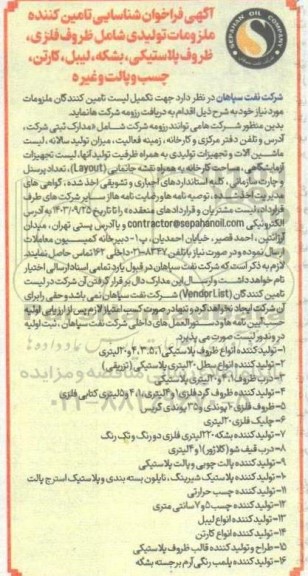 SEPAHAN OIL COMPANY
آگهی فراخوان شناسایی تامین کننده
ملزومات تولیدی شامل ظروف فلزی،
ظروف پلاستیکی، بشکه، لیبل، کارتن،
چسب و پالت و غیره
شرکت نفت سپاهان در نظر دارد جهت تکمیل لیست تامین کنندگان ملزومات
مورد نیاز خود به شرح ذیل اقدام به دریافت رزومه شرکت ها نماید.
بدین منظور شرکت ها می توانند رزومه شرکت شامل «مدارک ثبتی شرکت،
آدرس و تلفن دفتر مرکزی و کارخانه، زمینه فعالیت، میزان تولید سالانه، لیست
ماشین آلات و تجهیزات تولیدی به همراه ظرفیت تولید آنها، لیست تجهیزات
آزمایشگاهی، مساحت کارخانه به همراه نقشه جانمایی (Layout)، تعداد پرسنل
و چارت سازمانی، کلیه استانداردهای اجباری و تشویقی اخذ شده، گواهی های
مدیریت اخذ شده، توصیه نامه ها و رضایت نامه ها از سایر شرکت های طرف
قرارداد، لیست مشتریان و قراردادهای منعقده» را تا تاریخ ۱۴۰۳/۰۹/۲۵ به آدرس
الکترونیکی contractor@sepahanoil.com و یا آدرس پستی تهران، میدان
آرژانتین، احمد قصیر، خیابان احمدیان، پ ۱- دبیرخانه کمیسیون معاملات
ارسال نموده و در صورت نیاز با تلفن ۸۳۴۷-۰۲۱ داخلی ۱۶۲ تماس حاصل نمایند.
لازم به ذکر است که شرکت نفت سپاهان در قبول یا رد تمامی اسناد ارسالی اختیار
تام خواهد داشت و ارسال این مدارک دال بر قرار گرفتن آن شرکت در لیست
تامین کنندگان (Vendor List) شرکت نفت سپاهان نمی باشد و حقی را برای
آن شرکت ایجاد نخواهد کرد و تنها در صورت کسب امتیاز لازم پس از ارزیابی اولیه
حسب آیین نامه ها و دستورالعمل های داخلی شرکت نفت سپاهان، ثبت اولیه
در وندور لیست صورت می پذیرد.
۱- تولید کننده انواع ظروف پلاستیکی ۱، ۳، ۴، ۵ و ۲۰ لیتری
۲- تولید کننده انواع سطل ۲۰ لیتری پلاستیکی (تزریقی)
۳- درب ظروف ۱، ۴ و ۲۰ لیتری پلاستیکی
۴- تولید کننده ظروف گرد فلزی ۱ و ۴ لیتری، ۴،۱ و ۵ لیتری کتابی فلزی
۵- ظروف فلزی ۱ پوندی و ۳۵ پوندی گریس
۶- چلیک فلزی ۲۰ لیتری
۷- تولید کننده بشکه ۲۲۰ لیتری فلزی دو رنگ و تک رنگ
۸- درب قیف شو (کلاژور) ۱ و ۴ لیتری
۹- تولید کننده پالت چوبی و پالت پلاستیکی
۱۰- تولید کننده پلاستیک شیرینگ، نایلون بسته بندی و پلاستیک استرج پالت
۱۱- تولید کننده چسب حرارتی
۱۲- تولید کننده چسب ۵ و ۷ سانتی متری
۱۳- تولید کننده انواع لیبل
۱۴- تولید کننده انواع کارتن
۱۵- طراح و تولید کننده قالب ظروف پلاستیکی
۱۶- تولید کننده پلمب رنگی آرم برجسته بشکه